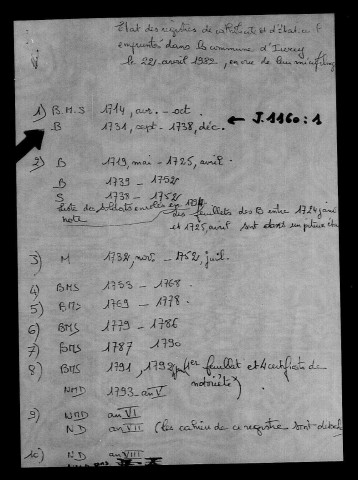 Etat des registres de catholicité et d'état civil
empruntés dans la commune d'
le 22 avril 1982, en vue de leur microfilmage
1) B.M.S 1714, avr. - oct.
B 1731, sept - 1738, déc. ← J.1160:1
2) B 1719, mai - 1725, avril.
B 1739 - 1752
S 1738 - 1752
Liste de soldats enrolés en
note
des feuillets des B entre 1724, janv
et 1725, avril sont dans un piteux état
3) M 1732, nov. - 1752, juil.
4) BMS 1753 - 1768.
5) BMS 1769 - 1778.
6) BMS 1779 - 1786
7) BMS 1787 1790
8) BMS 1791, 1792, 1er feuillet et 4 certificats de
notoriété)
NMD 1793 - an V
9) NMD an VI
ND an VII (les cahiers de ce registre sont
10) ND an VIII